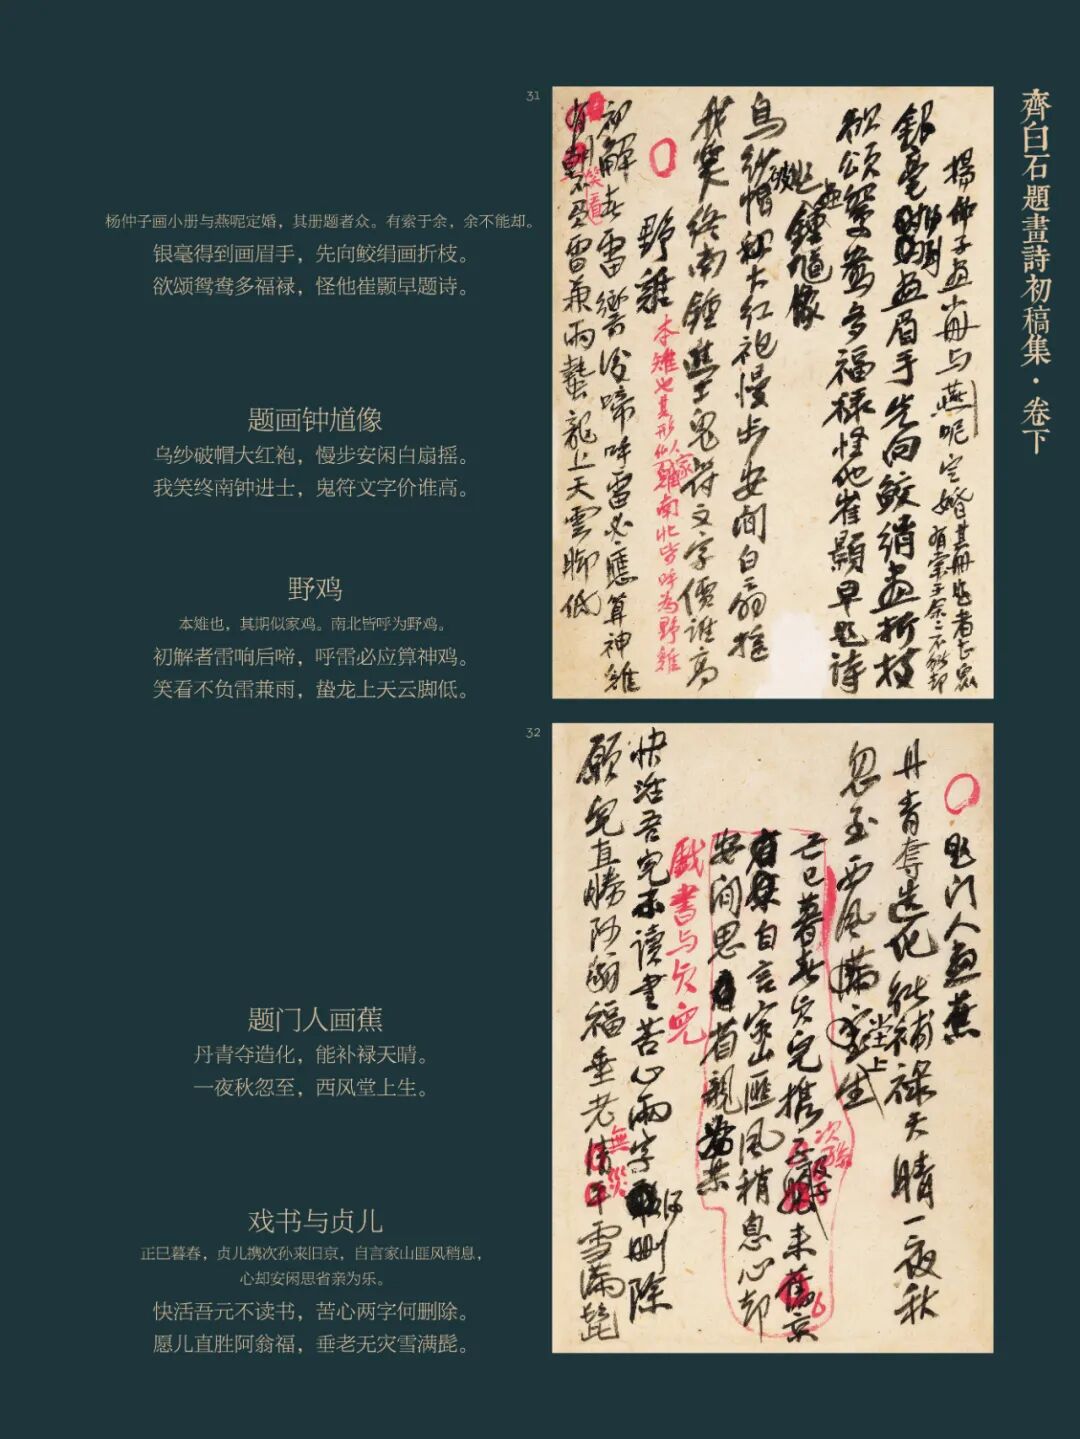 齊白石題畫詩初稿集·卷下
31
杨仲子画小册与燕呢定婚，其册题者众。有索于余，余不能却。
银毫得到画眉手，先向鲛绢画折枝。
欲颂鸳鸯多福禄，怪他崔颢早题诗。
题画钟馗像
乌纱破帽大红袍，慢步安闲白扇摇。
我笑终南钟进士，鬼符文字价谁高。
野鸡
本雉也，其期似家鸡。南北皆呼为野鸡。
初解者雷响后啼，呼雷必应算神鸡。
笑看不负雷兼雨，蛰龙上天云脚低。
楊仲子画小冊与燕呢定婚其冊題者衆
有索于余二不能却
銀毫得到画眉手先向鮫綃画折枝
欲頌鴛鴦多福祿怪他崔顥早題诗
題画鍾馗像
烏紗破帽大红袍慢步安闲白扇摇
我笑终南鍾進士鬼符文字價誰高
野雞
本雉也其形似家雞南北皆呼为野雞
初解春雷響後啼呼雷必應算神雞
笑看不负雷兼雨蟄龍上天雲脚低
32
题门人画蕉
丹青夺造化，能补禄天晴。
一夜秋忽至，西风堂上生。
戏书与贞儿
正巳暮春，贞儿携次孙来旧京，自言家山匪风稍息，
心却安闲思省亲为乐。
快活吾元不读书，苦心两字何删除。
愿儿直胜阿翁福，垂老无灾雪满髭。
題门人画蕉
丹青奪造化能補禄天晴一夜秋
忽至西风堂上生
暮春贞兒携次孫来舊京
自言家山匪风稍息心却
安闲思省親
戲書与贞兒
快活吾兒不读書苦心兩字何删除
願兒直勝阿翁福垂老無災雪满髭